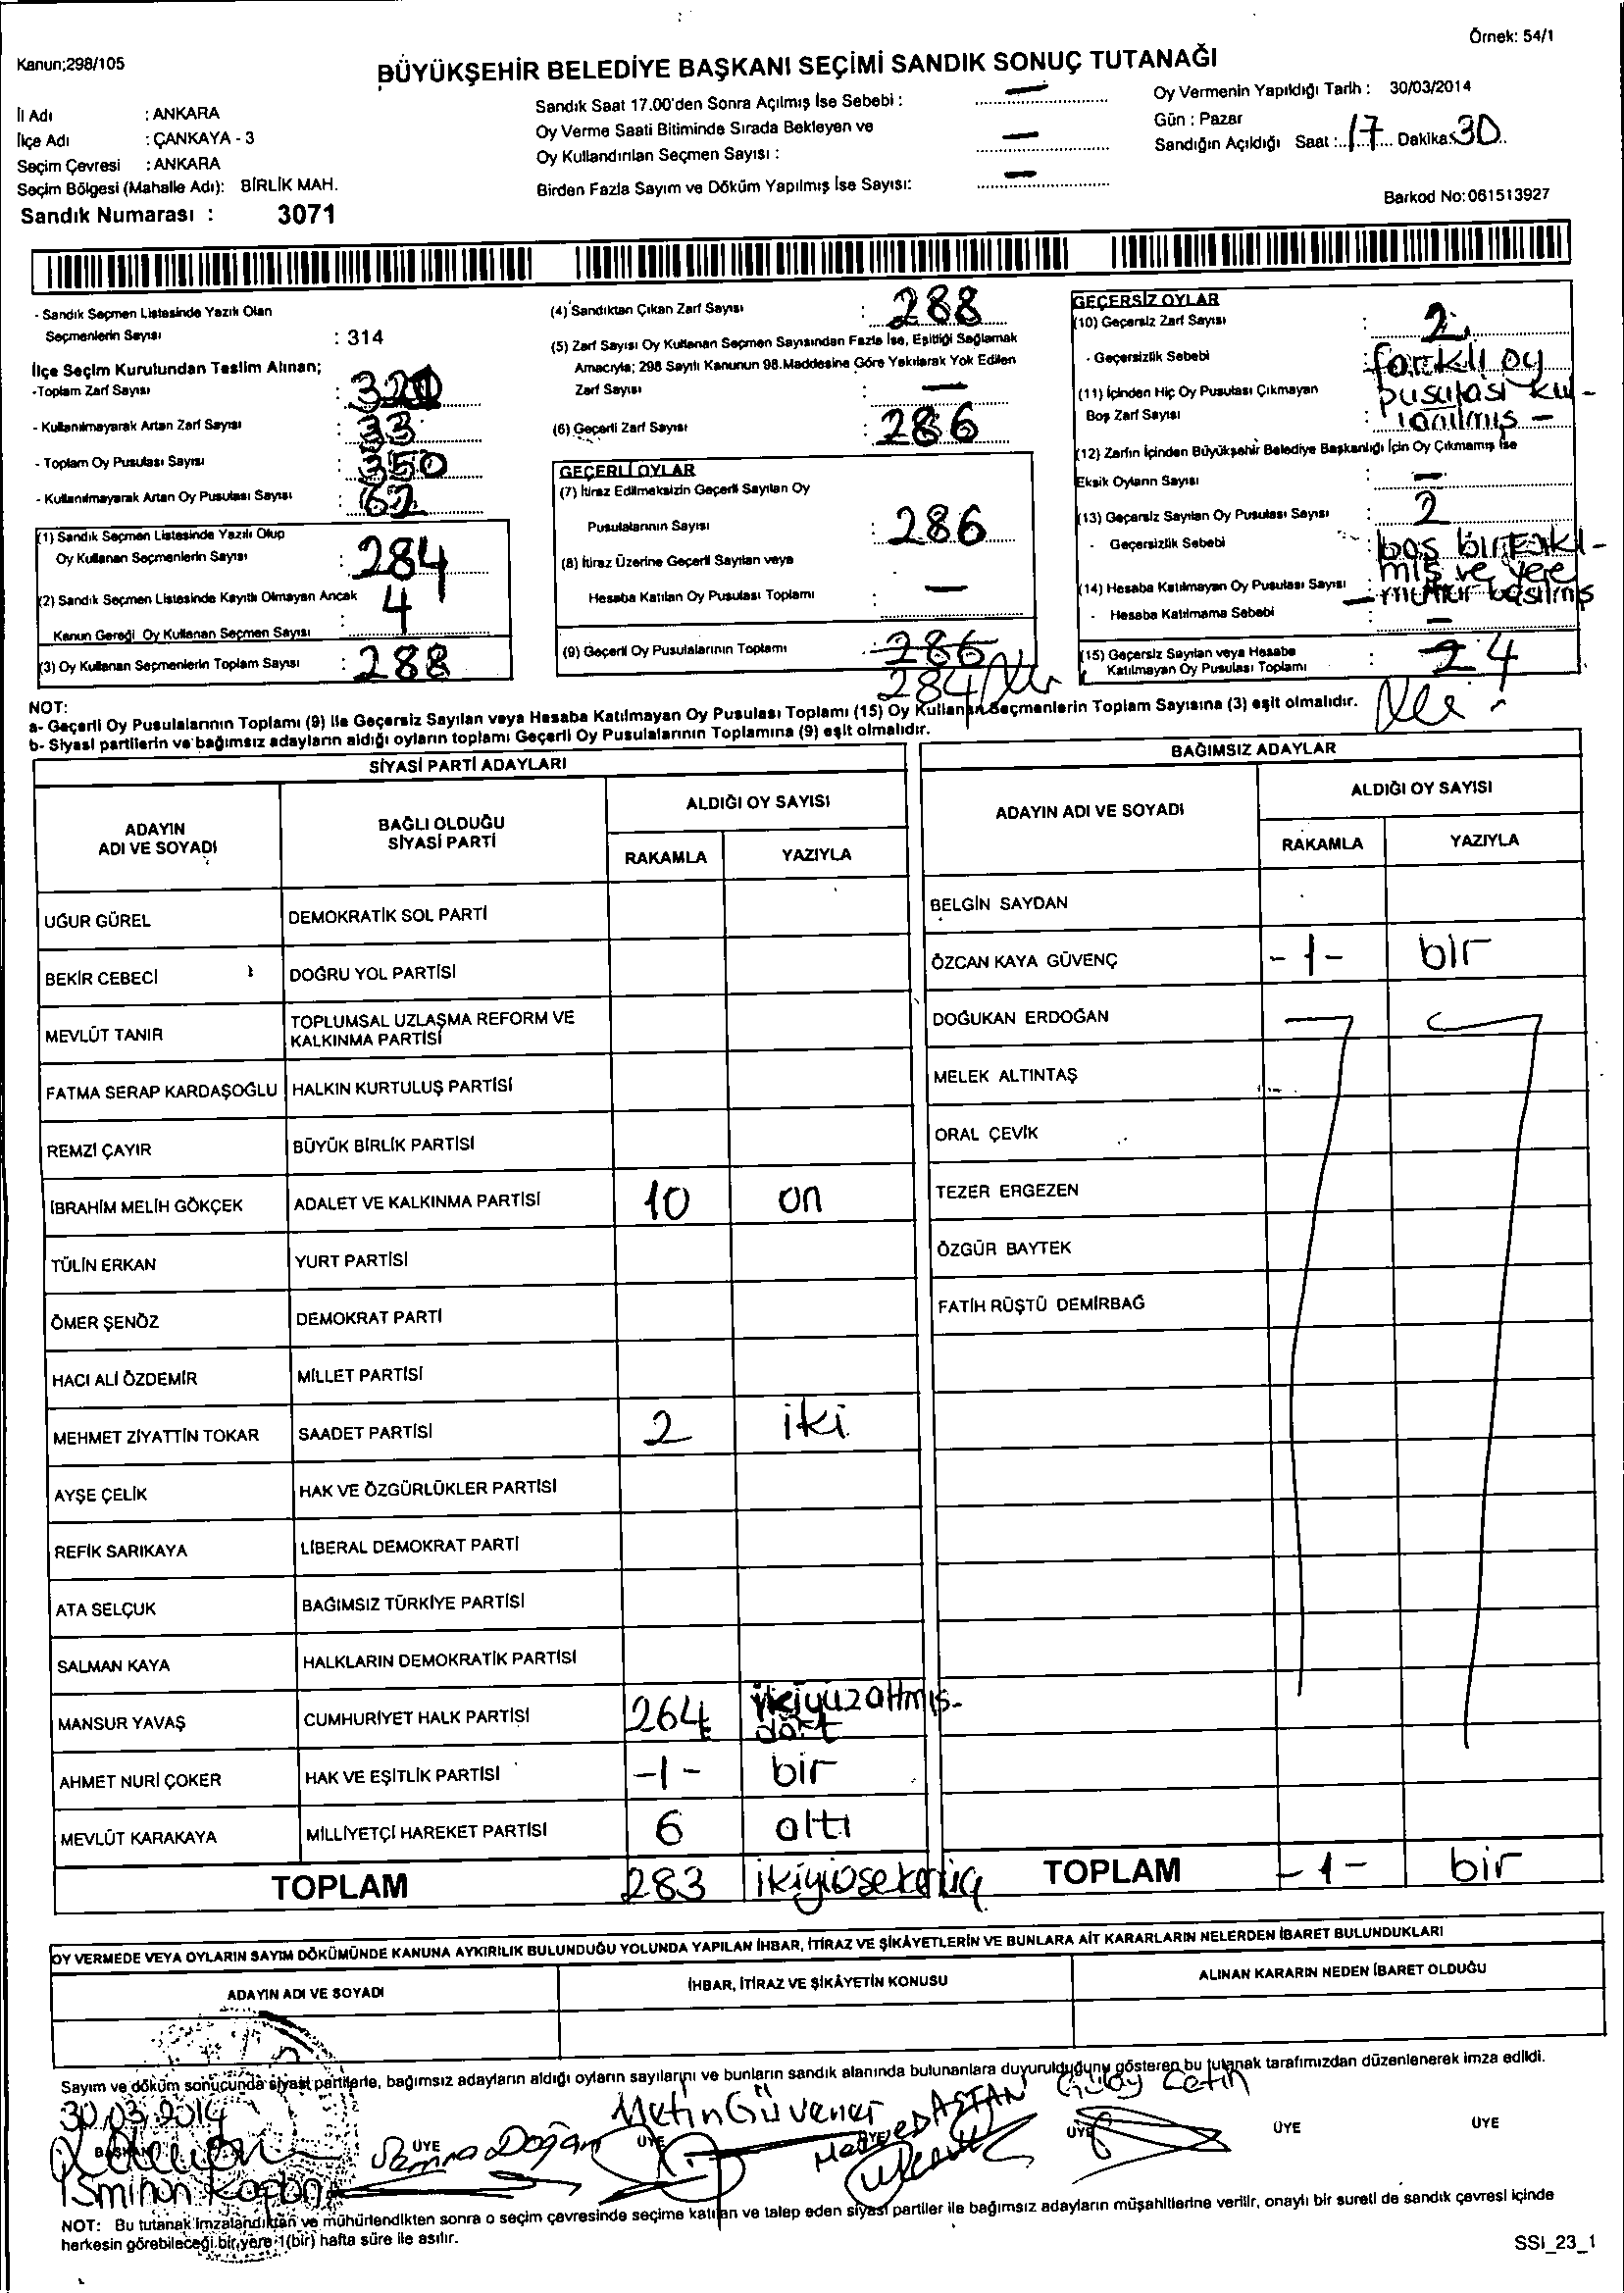 Örnek: 54/1
Kanun;298/105
BÜYÜKŞEHİR BELEDİYE BAŞKANI SEÇİMİ SANDIK SONUÇ TUTANAĞI
İl Adı : ANKARA
İlçe Adı : ÇANKAYA - 3
Seçim Çevresi : ANKARA
Seçim Bölgesi (Mahalle Adı): BİRLİK MAH.
Sandık Numarası : 3071
Sandık Saat 17.00'den Sonra Açılmış İse Sebebi : —
Oy Verme Saati Bitiminde Sırada Bekleyen ve
Oy Kullandırılan Seçmen Sayısı : —
Birden Fazla Sayım ve Döküm Yapılmış İse Sayısı: —
Oy Vermenin Yapıldığı Tarih : 30/03/2014
Gün : Pazar
Sandığın Açıldığı Saat : 17 Dakika: 30
Barkod No:061513927
- Sandık Seçmen Listesinde Yazılı Olan
Seçmenlerin Sayısı : 314
İlçe Seçim Kurulundan Teslim Alınan;
-Toplam Zarf Sayısı : 320
- Kullanılmayarak Artan Zarf Sayısı : 33
- Toplam Oy Pusulası Sayısı : 350
- Kullanılmayarak Artan Oy Pusulası Sayısı : 62
(1) Sandık Seçmen Listesinde Yazılı Olup
Oy Kullanan Seçmenlerin Sayısı : 284
(2) Sandık Seçmen Listesinde Kayıtlı Olmayan Ancak
Kanun Gereği Oy Kullanan Seçmen Sayısı : 4
(3) Oy Kullanan Seçmenlerin Toplam Sayısı : 288
(4) Sandıktan Çıkan Zarf Sayısı : 288
(5) Zarf Sayısı Oy Kullanan Seçmen Sayısından Fazla İse, Eşitliği Sağlamak
Amacıyla; 298 Sayılı Kanunun 98.Maddesine Göre Yakılarak Yok Edilen
Zarf Sayısı : —
(6) Geçerli Zarf Sayısı : 286
GEÇERLİ OYLAR
(7) İtiraz Edilmeksizin Geçerli Sayılan Oy
Pusulalarının Sayısı : 286
(8) İtiraz Üzerine Geçerli Sayılan veya
Hesaba Katılan Oy Pusulası Toplamı : —
(9) Geçerli Oy Pusulalarının Toplamı : 286
284
GEÇERSİZ OYLAR
(10) Geçersiz Zarf Sayısı : 2
- Geçersizlik Sebebi : farklı oy
pusulası kul-
lanılmış
(11) İçinden Hiç Oy Pusulası Çıkmayan
Boş Zarf Sayısı : —
(12) Zarfın İçinden Büyükşehir Belediye Başkanlığı İçin Oy Çıkmamış İse
Eksik Oyların Sayısı : —
(13) Geçersiz Sayılan Oy Pusulası Sayısı : 2
- Geçersizlik Sebebi : boş bırakıl-
mış ve yere
mühür basılmış
(14) Hesaba Katılmayan Oy Pusulası Sayısı : —
- Hesaba Katılmama Sebebi : —
(15) Geçersiz Sayılan veya Hesaba
Katılmayan Oy Pusulası Toplamı : 2 4
NOT:
a- Geçerli Oy Pusulalarının Toplamı (9) ile Geçersiz Sayılan veya Hesaba Katılmayan Oy Pusulası Toplamı (15) Oy Kullanan Seçmenlerin Toplam Sayısına (3) eşit olmalıdır.
b- Siyasi partilerin ve bağımsız adayların aldığı oyların toplamı Geçerli Oy Pusulalarının Toplamına (9) eşit olmalıdır.
SİYASİ PARTİ ADAYLARI
ADAYIN ADI VE SOYADI
BAĞLI OLDUĞU SİYASİ PARTİ
ALDIĞI OY SAYISI
RAKAMLA YAZIYLA
UĞUR GÜREL DEMOKRATİK SOL PARTİ
BEKİR CEBECİ DOĞRU YOL PARTİSİ
MEVLÜT TANIR TOPLUMSAL UZLAŞMA REFORM VE
KALKINMA PARTİSİ
FATMA SERAP KARDAŞOĞLU HALKIN KURTULUŞ PARTİSİ
REMZİ ÇAYIR BÜYÜK BİRLİK PARTİSİ
İBRAHİM MELİH GÖKÇEK ADALET VE KALKINMA PARTİSİ 10 on
TÜLİN ERKAN YURT PARTİSİ
ÖMER ŞENÖZ DEMOKRAT PARTİ
HACI ALİ ÖZDEMİR MİLLET PARTİSİ
MEHMET ZİYATTİN TOKAR SAADET PARTİSİ 2 iki
AYŞE ÇELİK HAK VE ÖZGÜRLÜKLER PARTİSİ
REFİK SARIKAYA LİBERAL DEMOKRAT PARTİ
ATA SELÇUK BAĞIMSIZ TÜRKİYE PARTİSİ
SALMAN KAYA HALKLARIN DEMOKRATİK PARTİSİ
MANSUR YAVAŞ CUMHURİYET HALK PARTİSİ 264 ikiyüzaltmış-
dört
AHMET NURİ ÇOKER HAK VE EŞİTLİK PARTİSİ -1- bir
MEVLÜT KARAKAYA MİLLİYETÇİ HAREKET PARTİSİ 6 altı
TOPLAM 283
BAĞIMSIZ ADAYLAR
ADAYIN ADI VE SOYADI
ALDIĞI OY SAYISI
RAKAMLA YAZIYLA
BELGİN SAYDAN
ÖZCAN KAYA GÜVENÇ -1- bir
DOĞUKAN ERDOĞAN
MELEK ALTINTAŞ
ORAL ÇEVİK
TEZER ERGEZEN
ÖZGÜR BAYTEK
FATİH RÜŞTÜ DEMİRBAĞ
TOPLAM -1- bir
OY VERMEDE VEYA OYLARIN SAYIM DÖKÜMÜNDE KANUNA AYKIRILIK BULUNDUĞU YOLUNDA YAPILAN İHBAR, İTİRAZ VE ŞİKÂYETLERİN VE BUNLARA AİT KARARLARIN NELERDEN İBARET BULUNDUKLARI
ADAYIN ADI VE SOYADI İHBAR, İTİRAZ VE ŞİKÂYETİN KONUSU ALINAN KARARIN NEDEN İBARET OLDUĞU
Sayım ve döküm sonucunda siyasi partilerle, bağımsız adayların aldığı oyların sayılarını ve bunların sandık alanında bulunanlara duyurulduğunu gösteren bu tutanak tarafımızdan düzenlenerek imza edildi.
30.03.2014
Metin Güvener ASTAN Gülay Çetin
Semra Doğan
BAŞKAN ÜYE ÜYE ÜYE ÜYE ÜYE ÜYE
NOT: Bu tutanak imzalandıktan ve mühürlendikten sonra o seçim çevresinde seçime katılan ve talep eden siyasi partiler ile bağımsız adayların müşahitlerine verilir, onaylı bir sureti de sandık çevresi içinde
herkesin görebileceği bir yere 1(bir) hafta süre ile asılır.
SSI_23_1